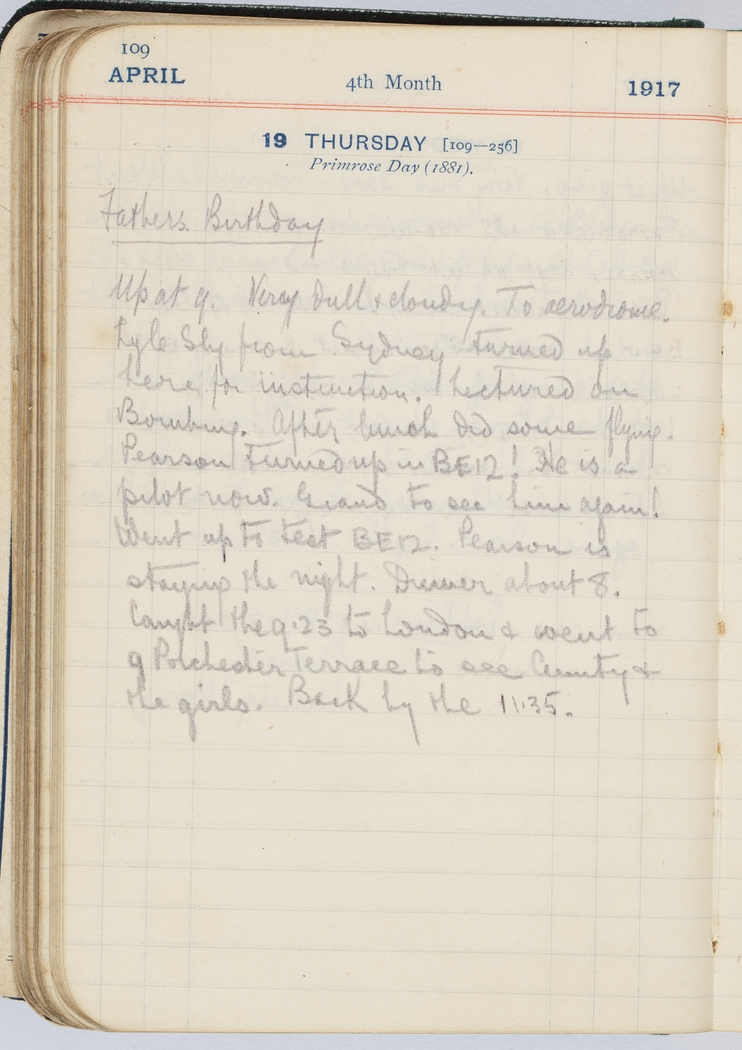 109
APRIL
4th Month
1917
19 THURSDAY [109—256]
Primrose Day (1881).
Fathers Birthday
Up at 9. Very dull & cloudy. To aerodrome.
Lyle Sly from Sydney turned up
here for instruction. Lectured on
Bombing. After lunch did some flying.
Pearson turned up in BE12! He is a
pilot now. Grand to see him again!
Went up to test BE12. Pearson is
staying the night. Dinner about 8.
Caught the 9.23 to London & went to
9 Porchester Terrace to see Aunty &
the girls. Back by the 11.35.